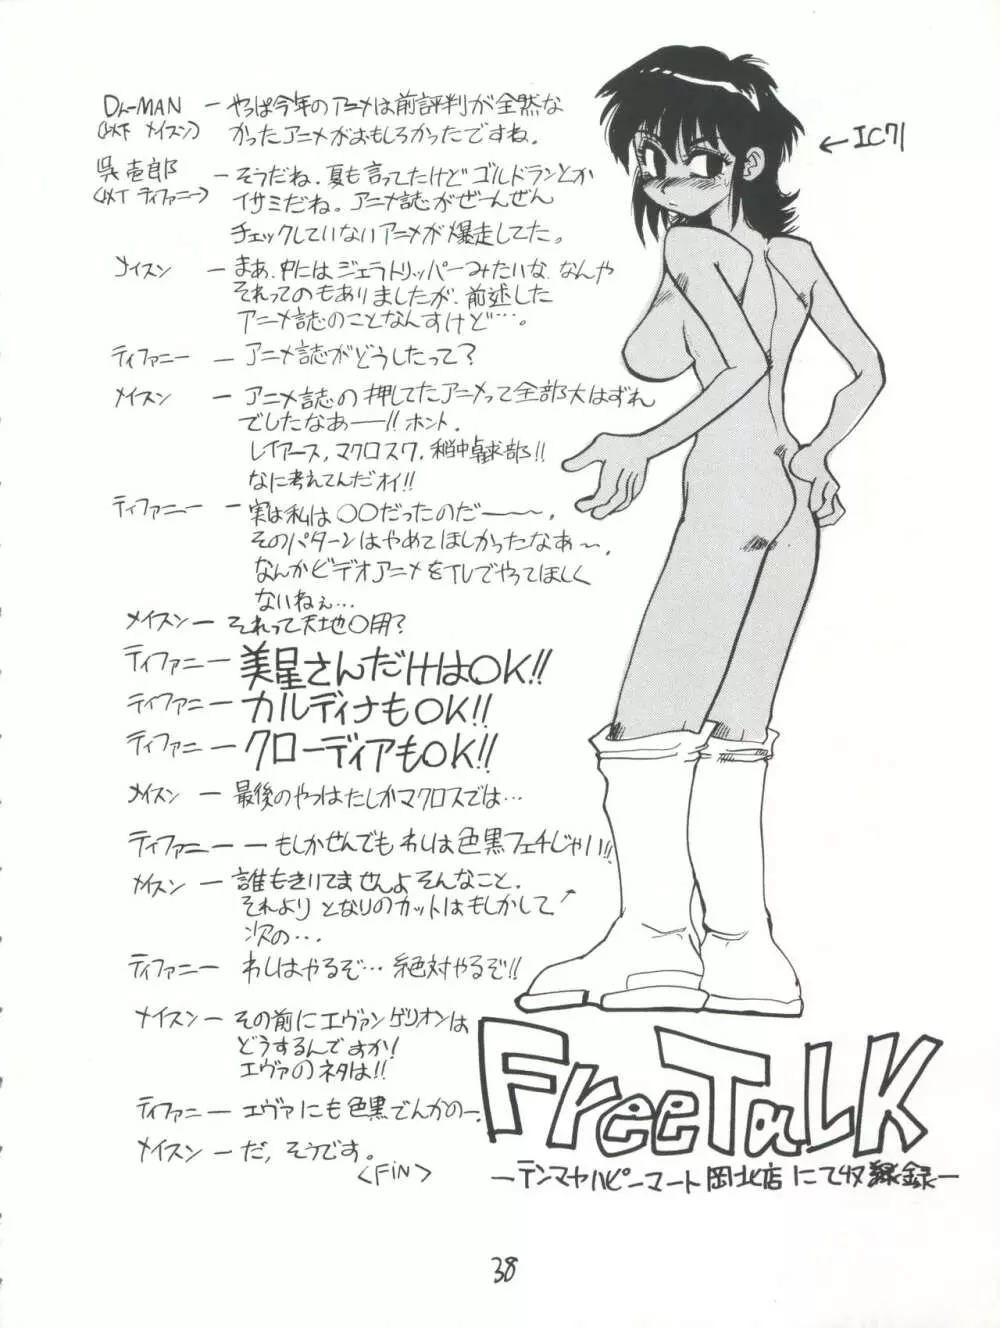 Dん-MAN ー やっぱ今年のアニメは前評判が全然な
(以下 メイスン) かったアニメがおもしろかったですね。
呉壱郎 ー そうだね、夏も言ってたけどゴルドランとか
(以下 ティファニー) イサミだね。アニメ誌がぜーんぜん
チェックしていないアニメが爆走してた。
メイスン ー まあ、中にはジェラトリッパーみたいな、なんや
それってのもありましたが、前述した
アニメ誌のことなんすけど…。
ティファニー ー アニメ誌がどうしたって?
メイスン ー アニメ誌の押してたアニメって全部大はずれ
でしたなあ——!! ホント.
レイアース, マクロス7, 稲中卓球部!!
なに考えてんだオイ!!
ティファニー ー 実は私は〇〇だったのだ——〜.
そのパターンはやめてほしかったなあ〜.
なんかビデオアニメをTVでやってほしく
ないねぇ…
メイスン ー それって天地〇用?
ティファニー ー 美星さんだけはOK!!
ティファニー ー カルディナもOK!!
ティファニー ー クローディアもOK!!
メイスン ー 最後のやつはたしかマクロスでは…
ティファニー ー もしかせんでもわしは色黒フェチじゃい!!
メイスン ー 誰もきいてませんよそんなこと.
それより となりのカットはもしかして
次の…
ティファニー ー わしはやるぞ… 絶対やるぞ!!
メイスン ー その前にエヴァンゲリオンは
どうするんですか!
エヴァのネタは!!
ティファニー ー エヴァにも色黒でんかのー.
メイスン ー だ, そうです。
<FiN>
← IC71
FreeTaLK
ーテンマヤハピーマート岡北店にて収録ー
38